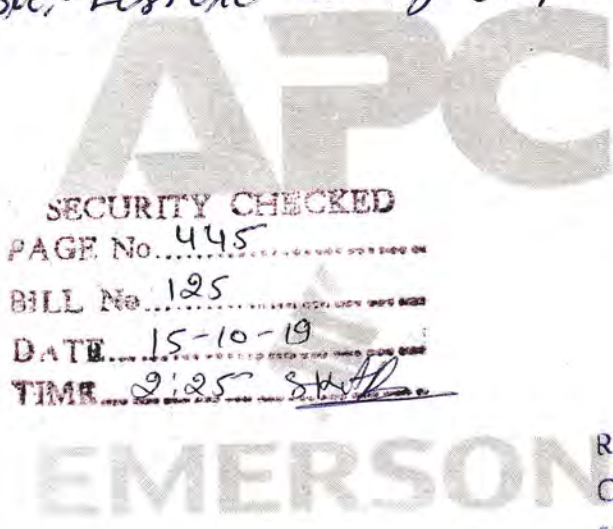 APC
SECURITY CHECKED
PAGE No. 445
BILL No. 125
DATE 15-10-19
TIME 2:25
EMERSON
R
C